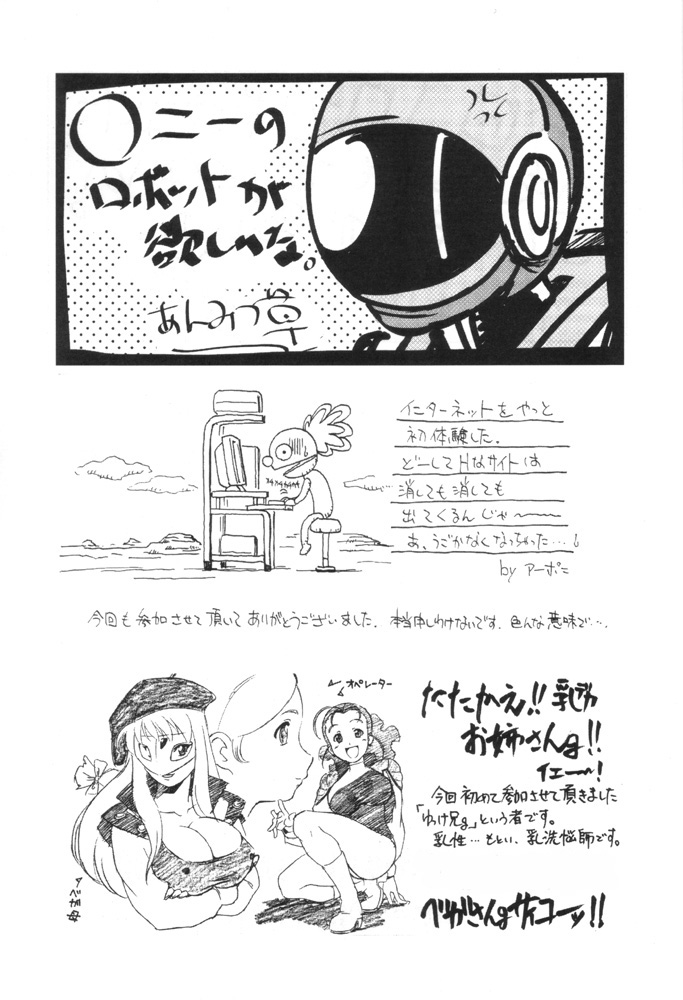 ◯ニーの
ロボットが
欲しいな。
あんみつ草
インターネットをやっと
初体験した.
どーしてHなサイトは
消しても消しても
出てくるんじゃ〜〜
あ、うごかなくなっちゃった…。
by アーポニ
今回も参加させて頂いてありがとうございました. 本当申しわけないです. 色んな意味で….
オペレーター
たたかえ!!
お姉さん!!
イエー!
今回初めて参加させて頂きました
という者です。
乳性…もとい、乳洗悩師です。
ベガ母
ベガさんサイコーッ!!